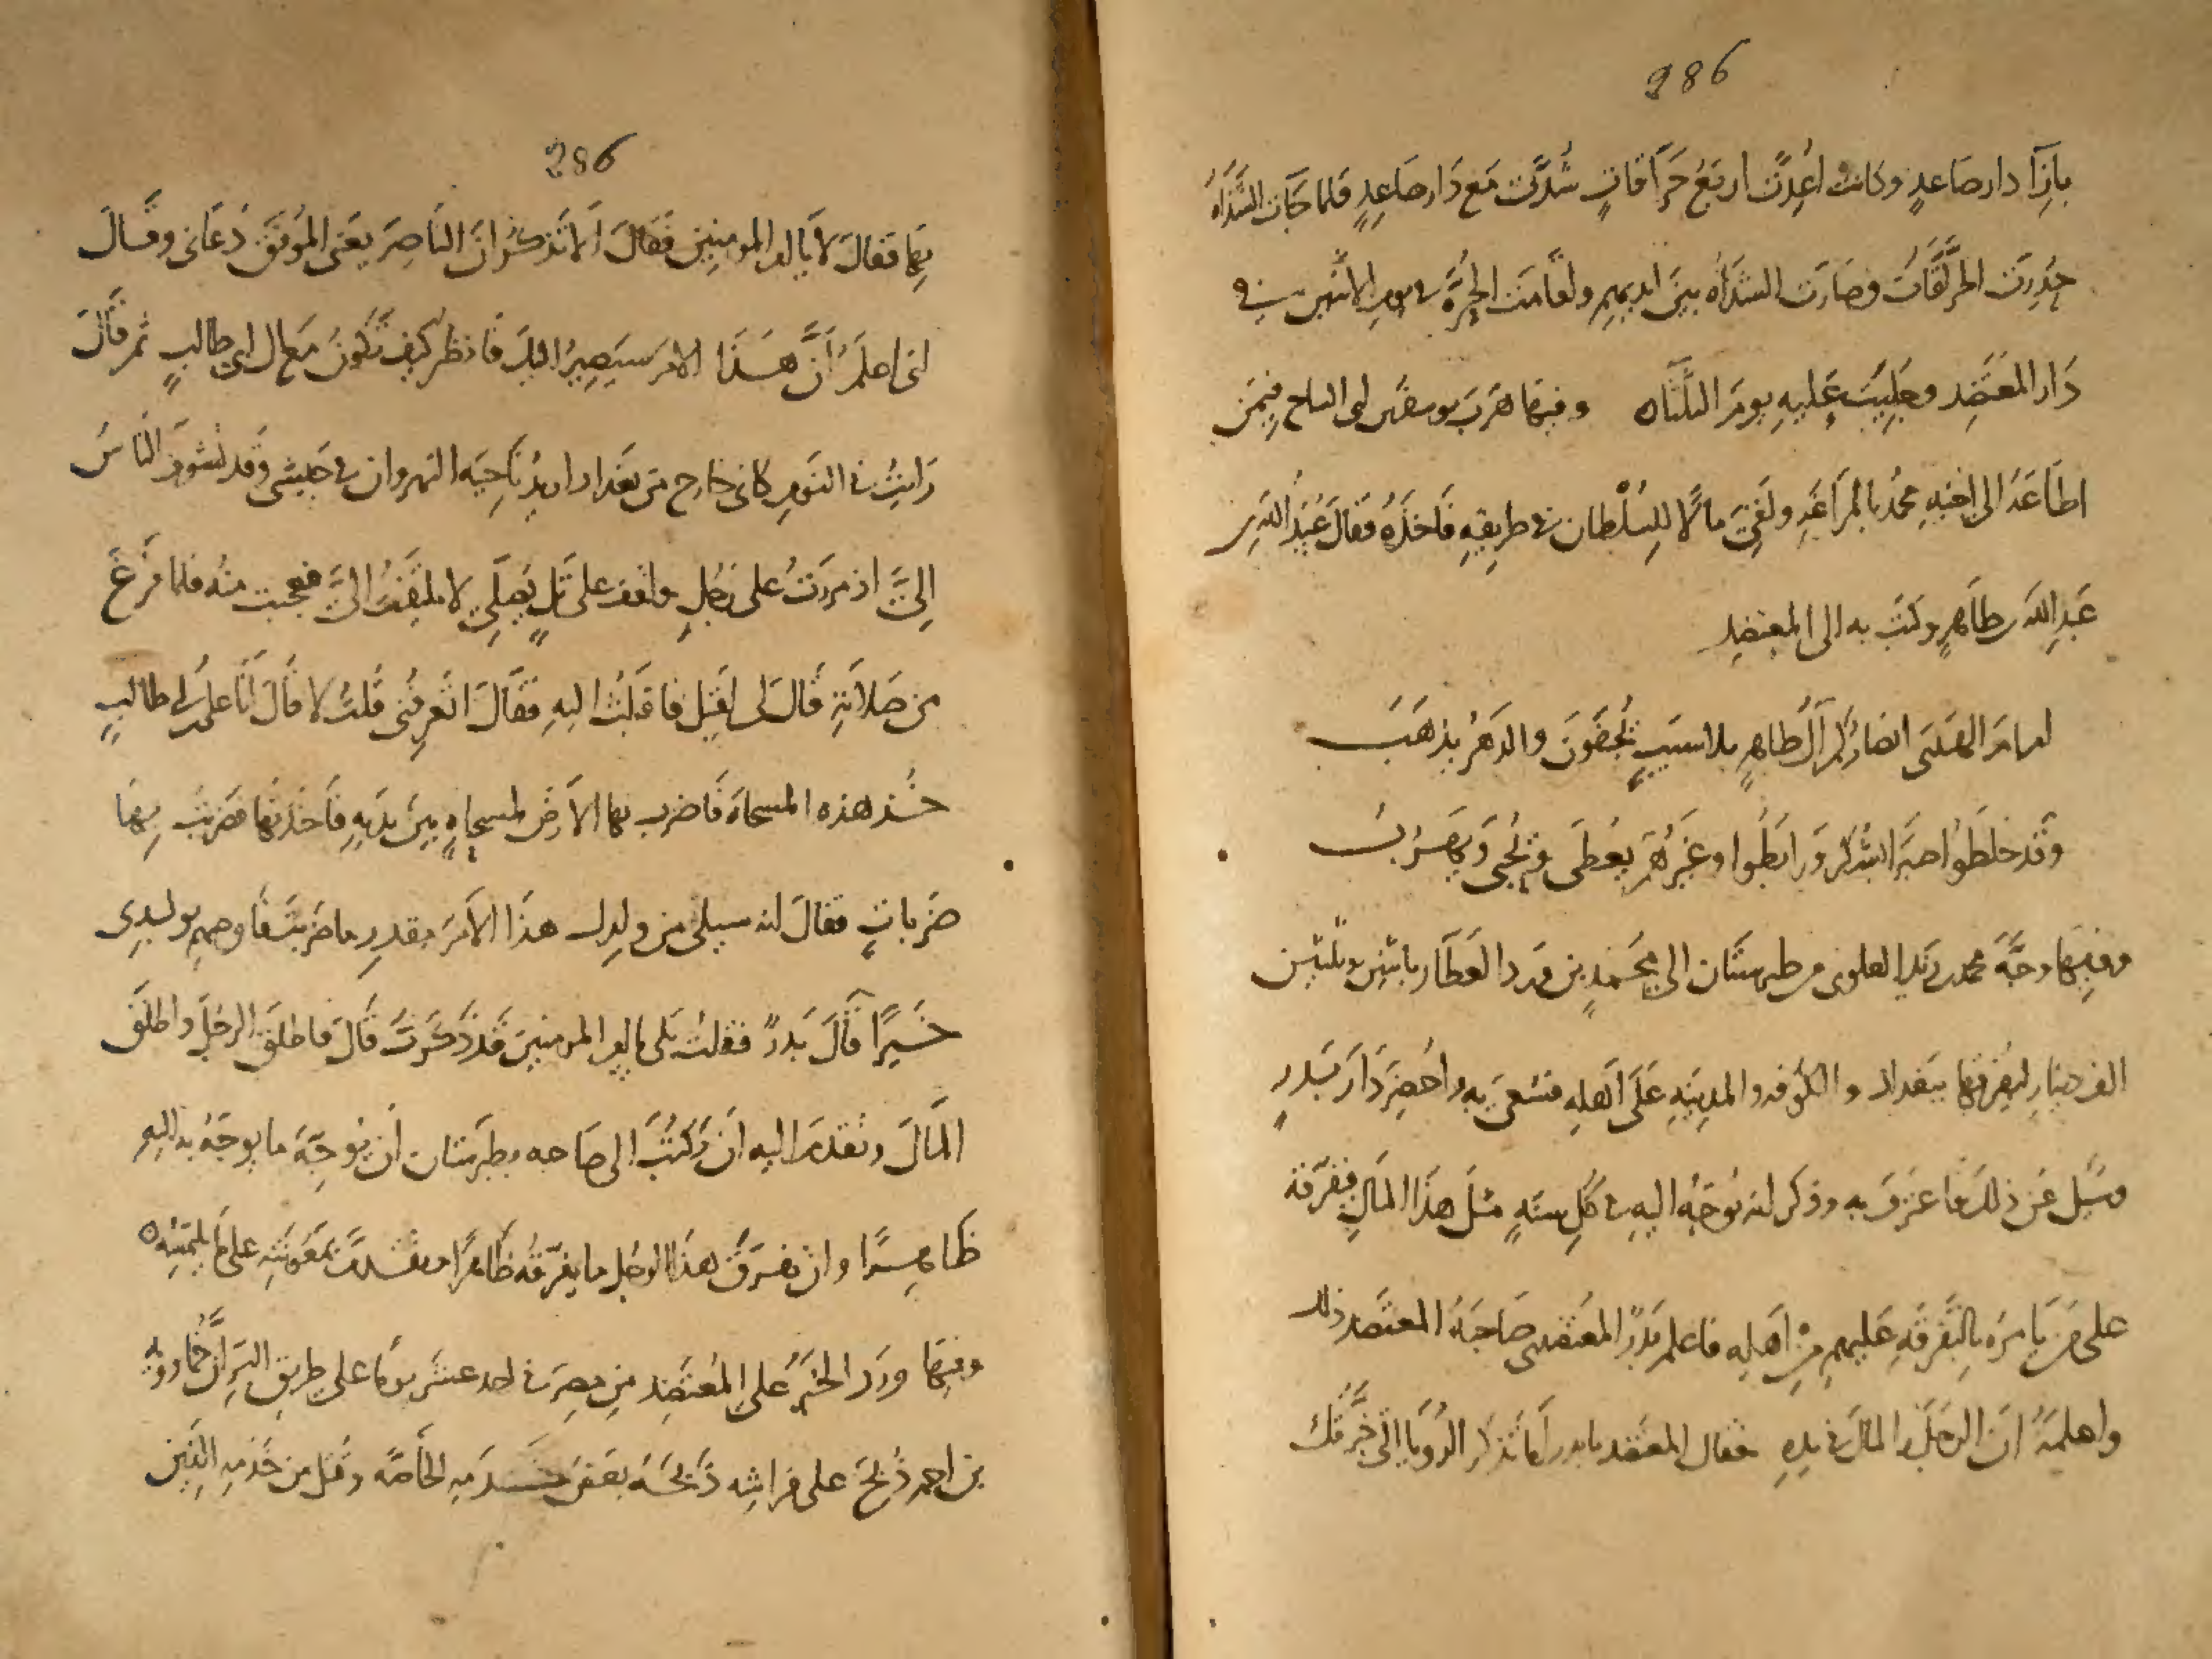 286
بازَآ دار صاعدٍ وكانت اُعِدَّت اربَعُ حَرّآقاتٍ شُدَّت مَع دَار صَاعِدٍ فلما جَآت الشَذَاهُ
حُدِرَت الحرّآقَات وصَارَت الشذَاه بينَ ايديهِم واقامَت الحُرَّة يومَ الاثنَين في
دَار المعتَضِد وجُلِيَت عَلَيهِ يومَ الثلثَاه وفيهَا هَرَب ابى الساج فيمَن
اطَاعَهُ الى اخيهِ محمد بالمرَاغَهِ ولَقِيَ مالًا للسُلْطان في طريقِهِ فَاخَذَهُ فقالَ عُبَيدُ الله بن
عَبدِ الله بن طاهرٍ وكتَبَ به الى المعتضِد
امامَ الهدَى انصَارُكُم آلُ طاهرٍ بلا سببٍ يُجفَونَ والدَهرُ يذهَبُ
وَقد خلطُوا صبرًا بشُكرٍ ورَابَطُوا وغَيرُهُمُ يُعطَى ويُحبَى وَيهَربُ
وفيهَا وجَّهَ محمد بن زَيد العلوى من طبرستَان الى محَمدِ بن وَرد العَطَّار باثنين وثلثين
الف دينارٍ ليُفرّقهَا ببغداد والكُوفه والمدِينَهِ عَلَى اَهلِهِ فسُعىَ بِه واُحضِرَ دَارَ بَدرٍ
وسُيِلَ عَن ذلكَ فاعتَرَفَ به وذكر انه يُوَجّهُ اليهِ في كُلِ سنَهٍ مثلَ هذَا المَالِ فيفَرّقه
على مَن يَامُرَه بالتَفرقَهِ عَليهم مِنْ اَهلِهِ فاعلم بَدرٌ المعتضدى صَاحِبَهُ المعتَضِد ذلك
واعلَمَهُ انَ الرَجلَ والمالَ في يدهِ فقال المعتضد يا بدر اَمَا تَذكُر الرُويَا التي خَبَّرتُكَ
286
بهَا فقالَ لا يا امير المومنين فَقالَ اَلا تَذكُر انَ النَاصِرَ يعنى المُوَفّقَ دَعَانى وقَالَ
لى اعلَم انَّ هَذَا الامرَ سيَصِيرُ اليكَ فانظر كيفَ تَكُونُ مَع ال ابى طالبٍ ثم قَالَ
رَايتُ في النَومِ كانى خارج من بَغداد اريدُ نَاحِيَه النهروان في جَيشى وقَد تشوف النَاسُ
الىَّ اذ مررتُ على رَجُلٍ واقف على تَلٍ يُصَلّى لا يلتَفتُ الىَّ فعجبت منهُ فلما فرَغَ
من صَلاتهِ قالَ لى اَقبِل فاقبَلتُ اليهِ فقَالَ اتَعرِفُنى قُلتُ لا قَالَ اَنَا على بن ابى طالبٍ
خُذ هذه المسحاة فَاضرب بها الارضَ لمسحاهٍ بينَ يَدَيهِ فاخَذتُهَا فضرَبتُ بهَا
ضَرباتٍ فقالَ انه سيلى من ولدك هذَا الامرَ بقدرِ ما ضرَبتَ فاوصِهِم بولدى
خَيرًا قَالَ بَدرٌ فقلتُ بَلى يا امير المومنينَ قَد ذَكَرتَ قَالَ فاطلَقَ الرجُلَ واطلَقَ
المَالَ وتقَدمَ اليه ان يَكتُبَ الى صَاحبه بطَبرستان اَن يُوجّهَ ما يوجّهُ به اليهِ
ظَاهِرًا وان يفرّقَ هذَا الرجُل ما يفرّقُهُ ظَاهرًا وتقَدَّمَ بمعُونَتهِ على ما يلتمِسُه
وفيهَا وَرَد الخبَرُ على المُعتَضِد مِن مِصرَ في احد عشَر يومًا على طريق البَرِ انَّ خُمَارويه
بن احمد ذُبِحَ على فراشِه ذَبحَهُ بعضُ خَدمهِ الخَاصّه وقُتلَ من خَدَمِهِ الذِين